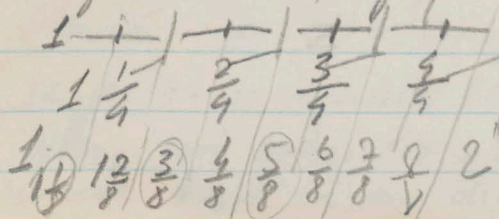 1
1 1/4 2/4 3/4 4/4
1 1 1/8 1 2/8 3/8 4/8 5/8 6/8 7/8 2